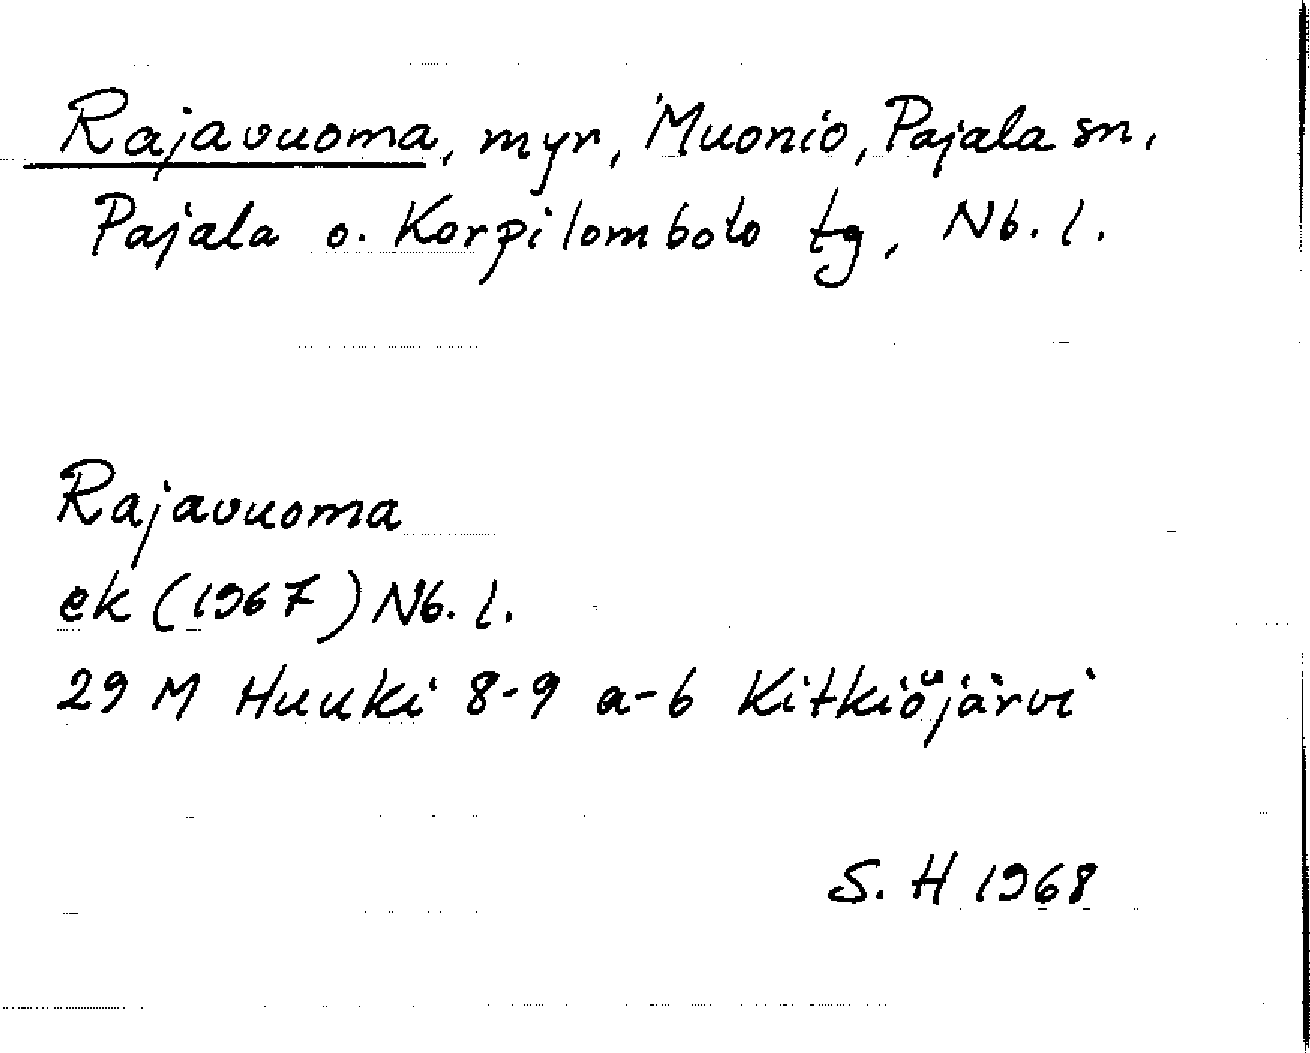 Rajavuoma, myr, Muonio, Pajala sn,
Pajala o. Korpilombolo tg, Nb. l.
Rajavuoma
ek (1967) Nb. l.
29 M Huuki 8-9 a-b Kitkiöjärvi
S. H 1968